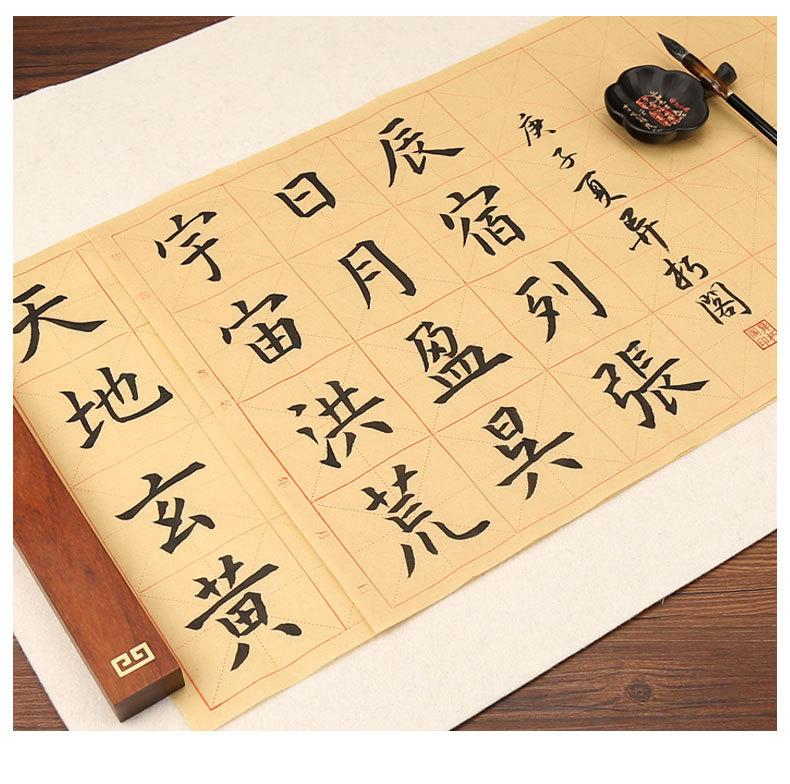 天地玄黄
宇宙洪荒
日月盈昃
辰宿列張
庚子夏 朽閣